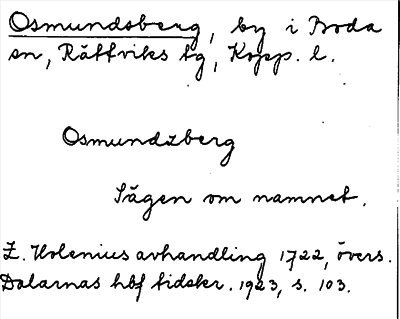 Osmundsberg, by i Boda
sn, Rättviks tg, Kopp. l.
Osmundzberg
Sägen om namnet.
Z. Holenius avhandling 1722, övers.
Dalarnas hbf tidskr. 1923, s. 103.